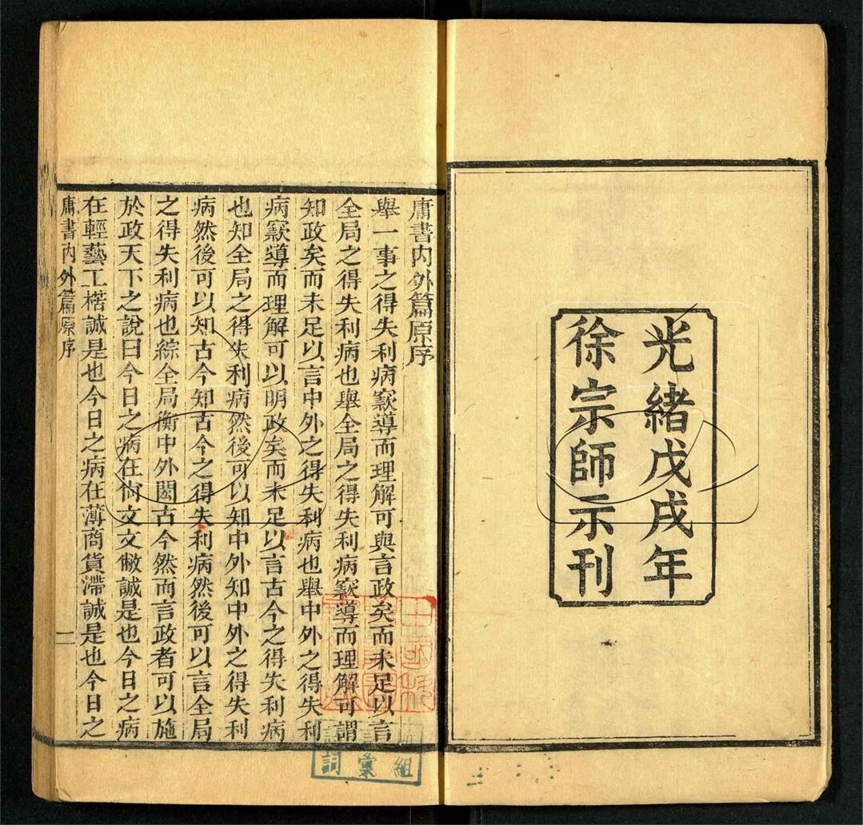 光緒戊戌年
徐宗師示刊
庸書內外篇原序
舉一事之得失利病窾導而理解可與言政矣而未足以言
全局之得失利病也舉全局之得失利病窾導而理解可謂
知政矣而未足以言中外之得失利病也舉中外之得失利
病窾導而理解可以明政矣而未足以言古今之得失利病
也知全局之得失利病然後可以知中外知中外之得失利
病然後可以知古今知古今之得失利病然後可以言全局
之得失利病也綜全局衡中外閎古今然而言政者可以施
於政天下之說曰今日之病在尙文文敝誠是也今日之病
在輕藝工楛誠是也今日之病在薄商貨滯誠是也今日之
庸書內外篇原序
二
組